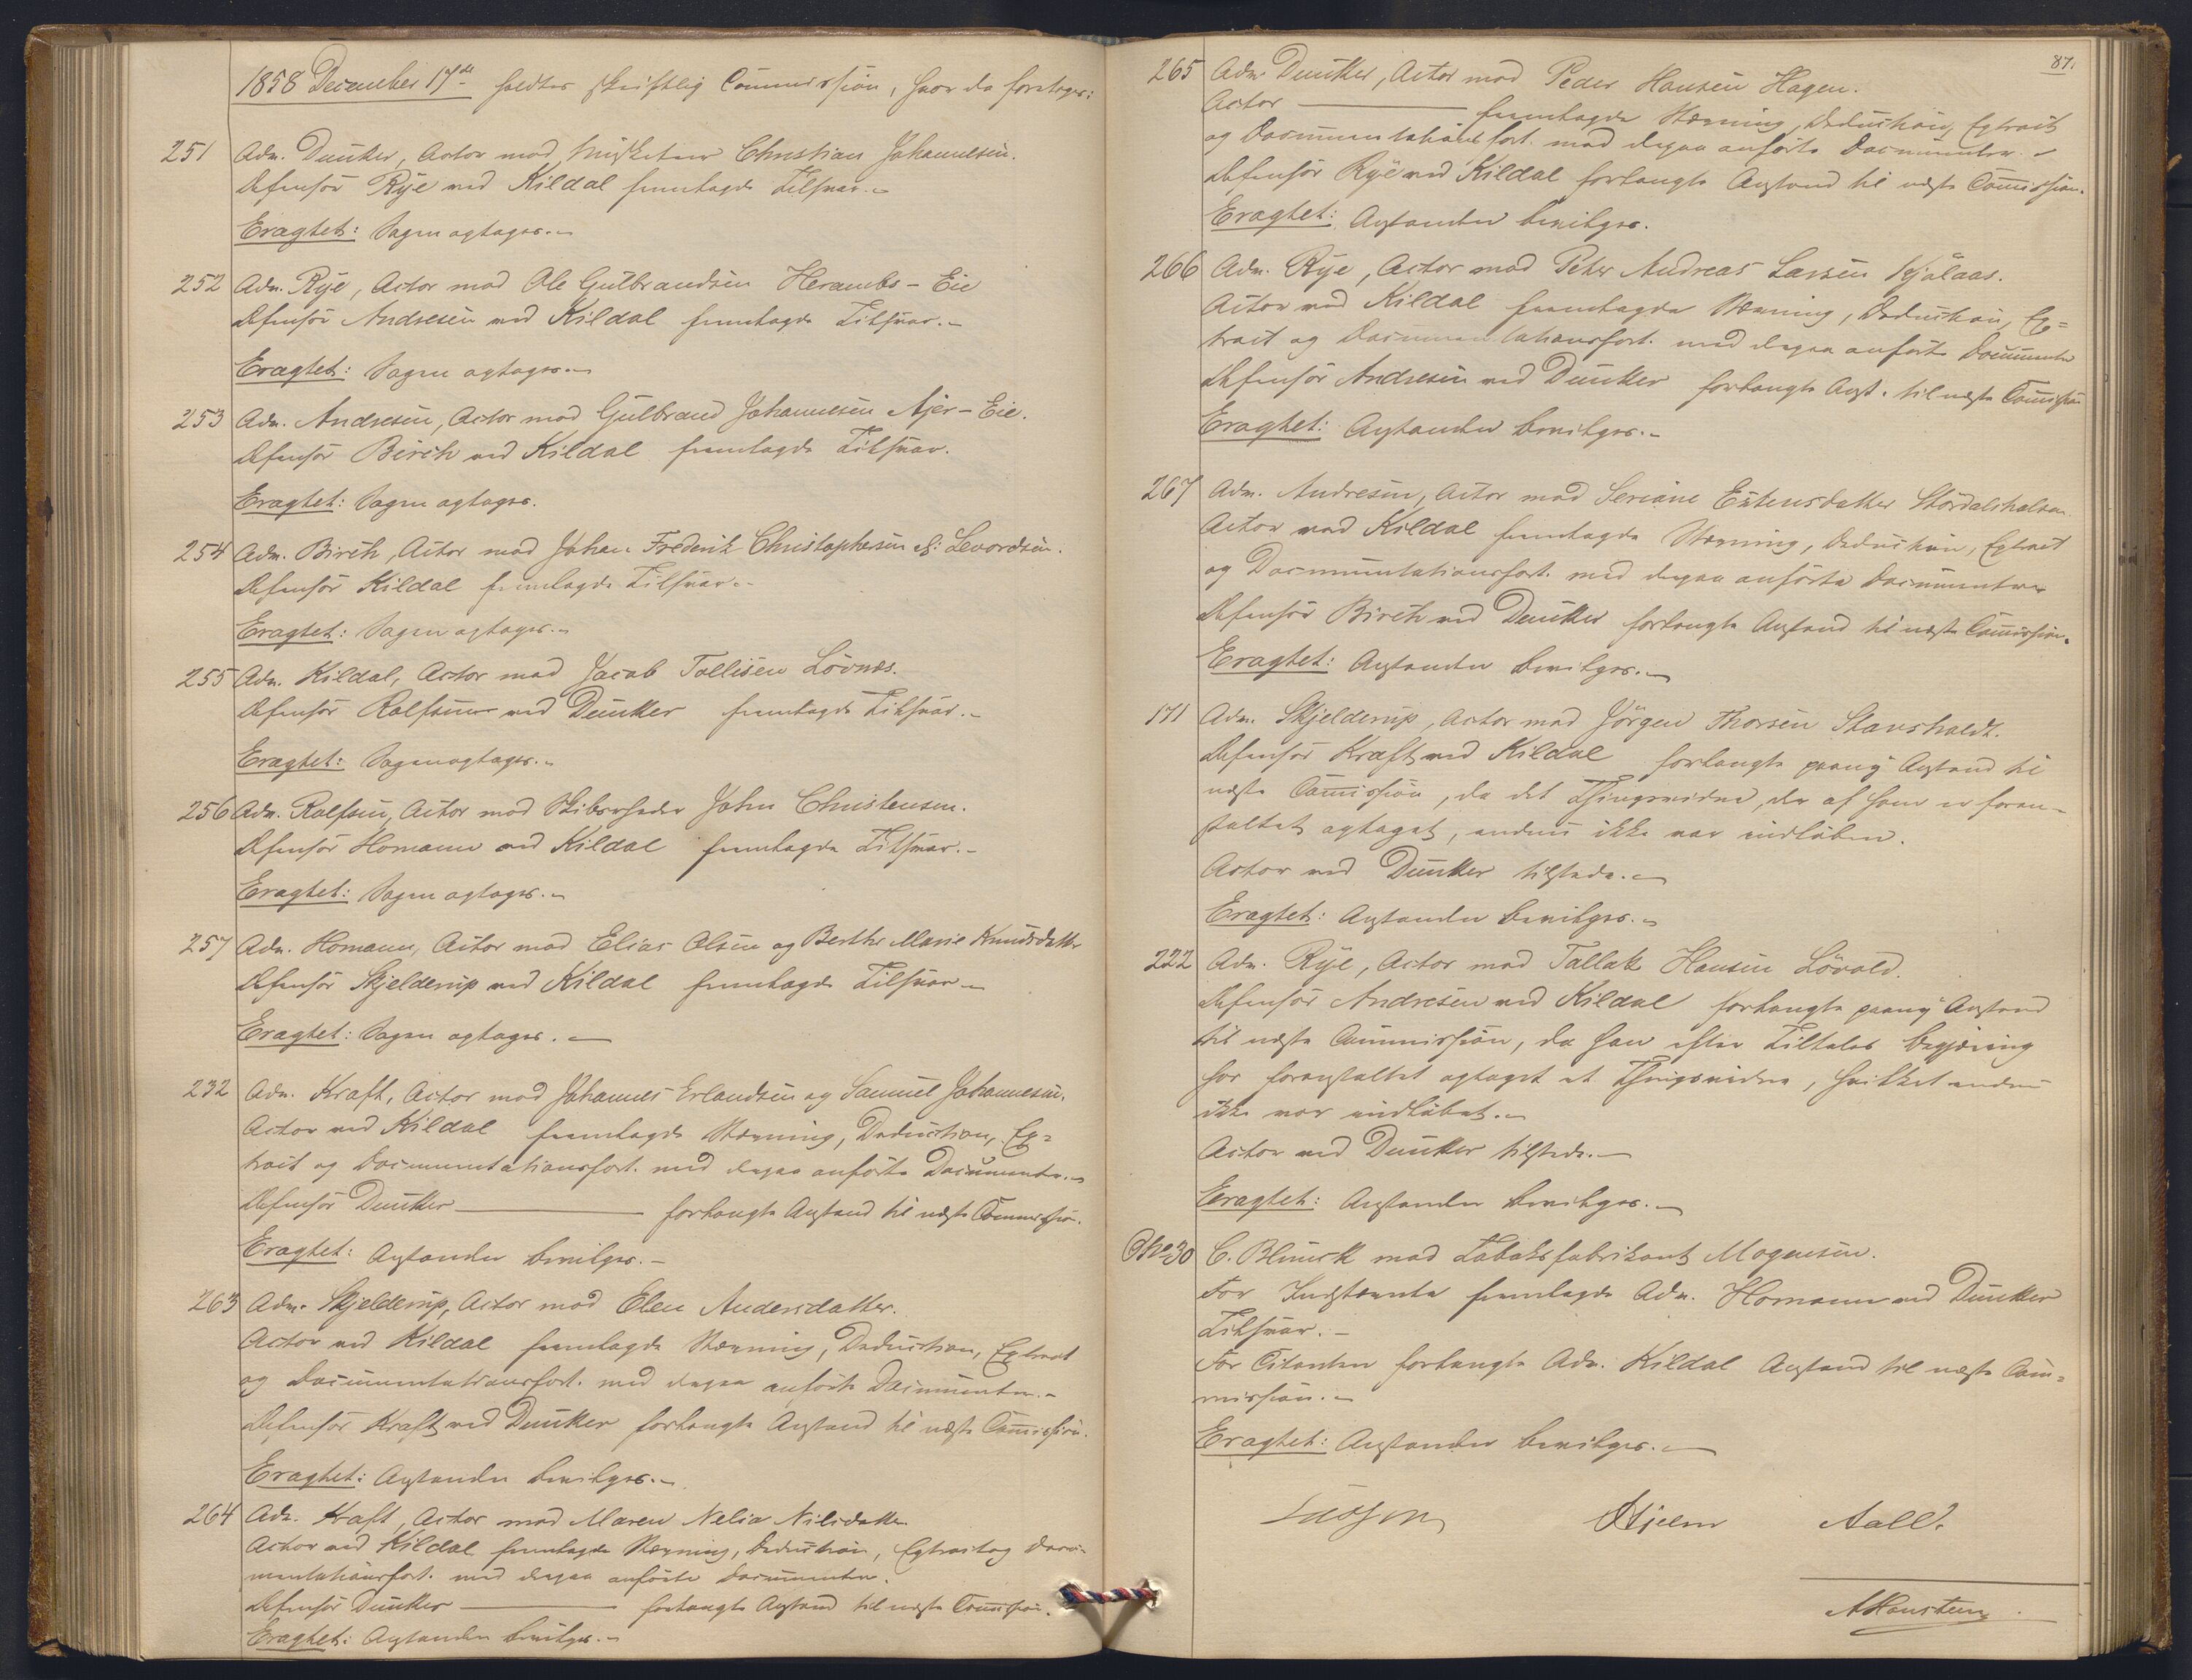 1858 December 17de holdtes skriftlig Commission, hvor da foretoges:
251 Adv. Dunker, Actor mod Musketeer Christian Johannesen.
Defensor Rye ved Kildal fremlagde Tilsvar.-
Eragtet: Sagen optages.-
252 Adv. Rye, Actor mod Ole Gulbrandsen Herambs-Eie
Defensor Andresen ved Kildal fremlagde Tilsvar.-
Eragtet: Sagen optages.-
253 Adv. Andresen, Actor mod Gulbrand Johannesen Ajer-Eie.
Defensor Birch ved Kildal fremlagde Tilsvar.
Eragtet: Sagen optages.
254 Adv. Birch, Actor mod Johan Frederik Christophersen el: Levordsen.
Defensor Kildal fremlagde Tilsvar.-
Eragtet: Sagen optages.-
255 Adv. Kildal, Actor mod Jacob Tollisen Lövnes.
Defensor Rolfsen ved Dunker fremlagde Tilsvar.-
Eragtet: Sagen optages.-
256 Adv. Rolfsen, Actor mod Skibsrheder John Christensen.
Defensor Homann ved Kildal fremlagde Tilsvar.-
Eragtet: Sagen optages.-
257 Adv. Homann, Actor mod Elias Olsen og Berthe Marie Knudsdatter
Defensor Skjelderup ved Kildal fremlagde Tilsvar-
Eragtet: Sagen optages.-
232 Adv. Kraft, Actor mod Johannes Erlandsen og Samuel Johannesen.
Actor ved Kildal fremlagde Stævning, Deduction, Ex=
trait og Documentationsfort. med derpaa anförte Documenter.-
Defensor Dunker ——— forlangte Anstand til næste Commission.
Eragtet: Anstanden bevilges.-
263 Adv. Skjelderup, Actor mod Elen Andersdatter.
Actor ved Kildal fremlagde Stævning, Deduction, Extrait
og Documentationsfort. med derpaa anförte Documenter.-
Defensor Kraft ved Dunker forlangte Anstand til næste Commission.
Eragtet: Anstanden bevilges.-
264 Adv. Kraft, Actor mod Maren Nelia Nilsdatter
Actor ved Kildal fremlagde Stævning, Deduction, Extrait og Docu-
mentationsfort. med derpaa anförte Documenter.
Defensor Dunker ——— forlangte Anstand til næste Commission.
Eragtet: Anstanden bevilges.-
87.
265 Adv. Dunker, Actor mod Peder Hansen Hagen.
Actor ——— fremlagde Stævning, Deduction, Extrait
og Documentationsfort. med derpaa anförte Documenter.-
Defensor Rye ved Kildal forlangte Anstand til næste Commission.
Eragtet: Anstanden bevilges.
266 Adv. Rye, Actor mod Peter Andreas Larsen Kjölaas.
Actor ved Kildal fremlagde Stævning, Deduction, Ex=
trait og Documentationsfort. med derpaa anförte Documenter
Defensor Andresen ved Dunker forlangte Anst. til næste Commission
Eragtet: Anstanden bevilges.-
267 Adv. Andresen, Actor mod Seriane Estensdatter Stördalshalsen.
Actor ved Kildal fremlagde Stævning, Deduction, Extrait
og Documentationsfort. med derpaa anförte Documenter
Defensor Birch ved Dunker forlangte Anstand til næste Commission.
Eragtet: Anstanden bevilges.-
171 Adv. Skjelderup, Actor mod Jörgen Thorsen Stavsholdt.
Defensor Kraft ved Kildal forlangte paany Anstand til
næste Commission, da det Thingsvidne, der af ham er foran-
staltet optaget, endnu ikke var indløben.
Actor ved Dunker tilstede.-
Eragtet: Anstanden bevilges.-
222 Adv. Rye, Actor mod Tallak Hansen Lövold.
Defensor Andresen ved Kildal forlangte paany Anstand
til næste Commission, da han efter Tiltaltes Begjæring
har foranstaltet optaget et Thingsvidne, hvilket endnu
ikke var indløbet.-
Actor ved Dunker tilstede.-
Eragtet: Anstanden bevilges.-
No 30 C. Blunck mod Tobaksfabrikant Mogensen.
For Indstevnte fremlagde Adv. Homann ved Dunker
Tilsvar.-
For Citanten forlangte Adv. Kildal Anstand til næste Com=
mission.-
Eragtet: Anstanden bevilges.-
Lasson Hjelm Aall.
AHansteen